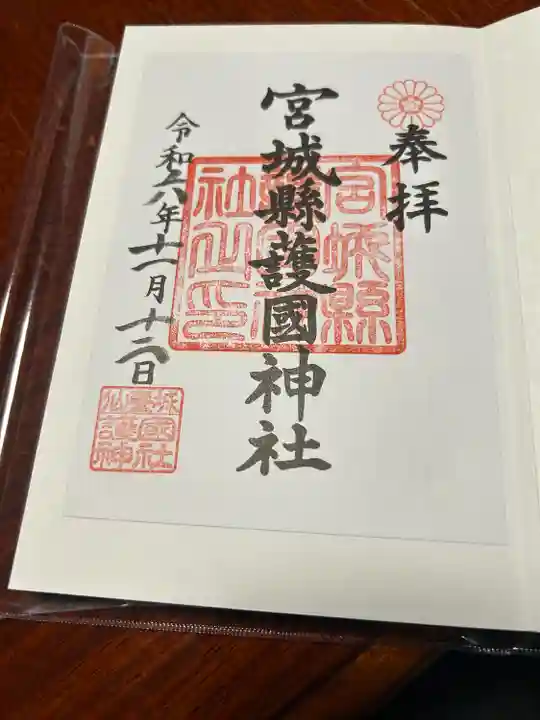 奉拝
宮城縣護國神社
宮城縣
護國神
社之印
令和六年十一月十二日